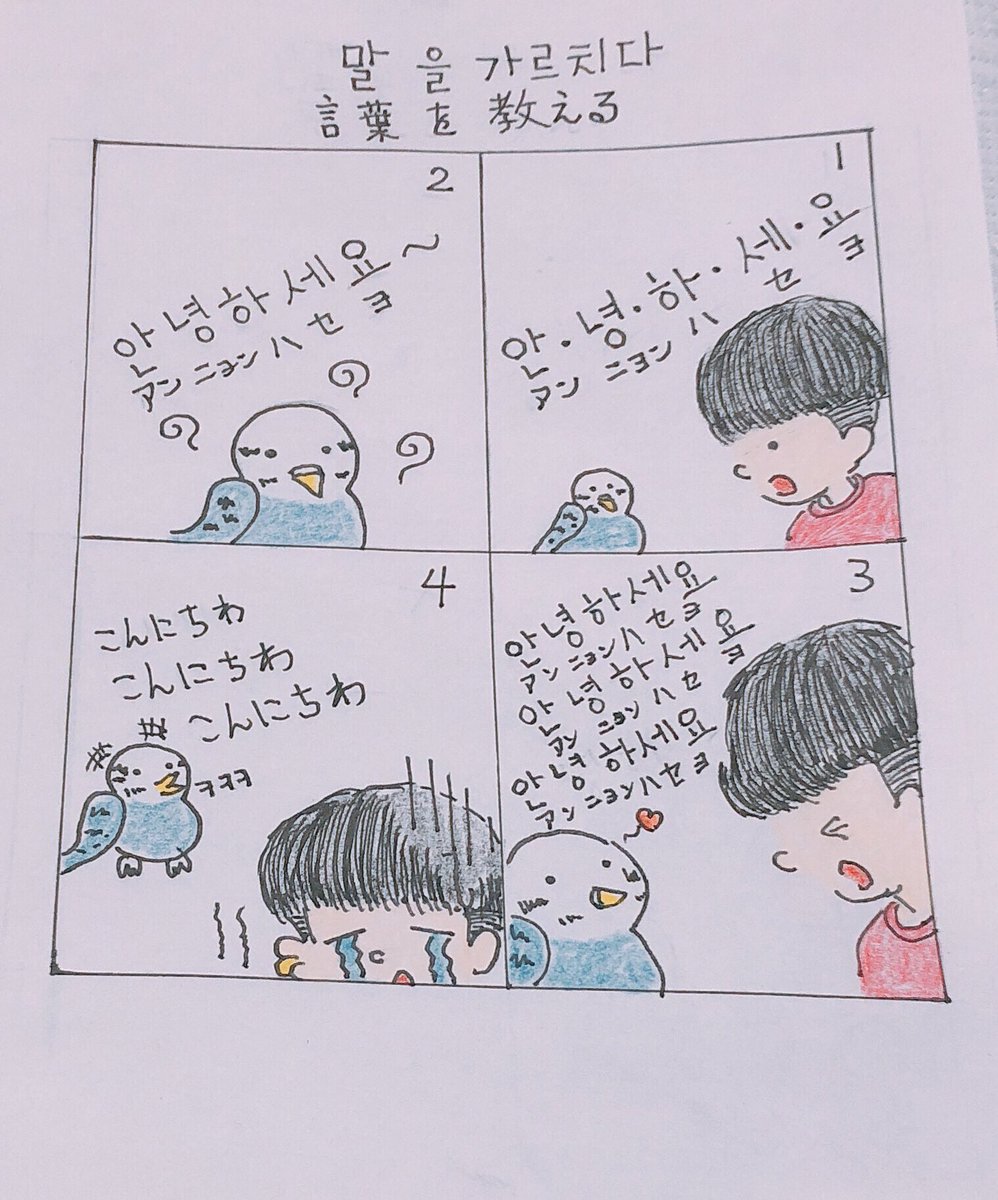 말을 가르치다
言葉を教える
1
안·녕·하·세·요
アン ニョン ハ セ ヨ
2
안녕하세요~
アン ニョン ハ セ ヨ
? ? ?
3
안녕하세요
アン ニョン ハ セ ヨ
안녕하세요
アン ニョン ハ セ ヨ
안녕하세요
アン ニョン ハ セ ヨ
4
こんにちわ
こんにちわ
こんにちわ
ㅋㅋㅋ